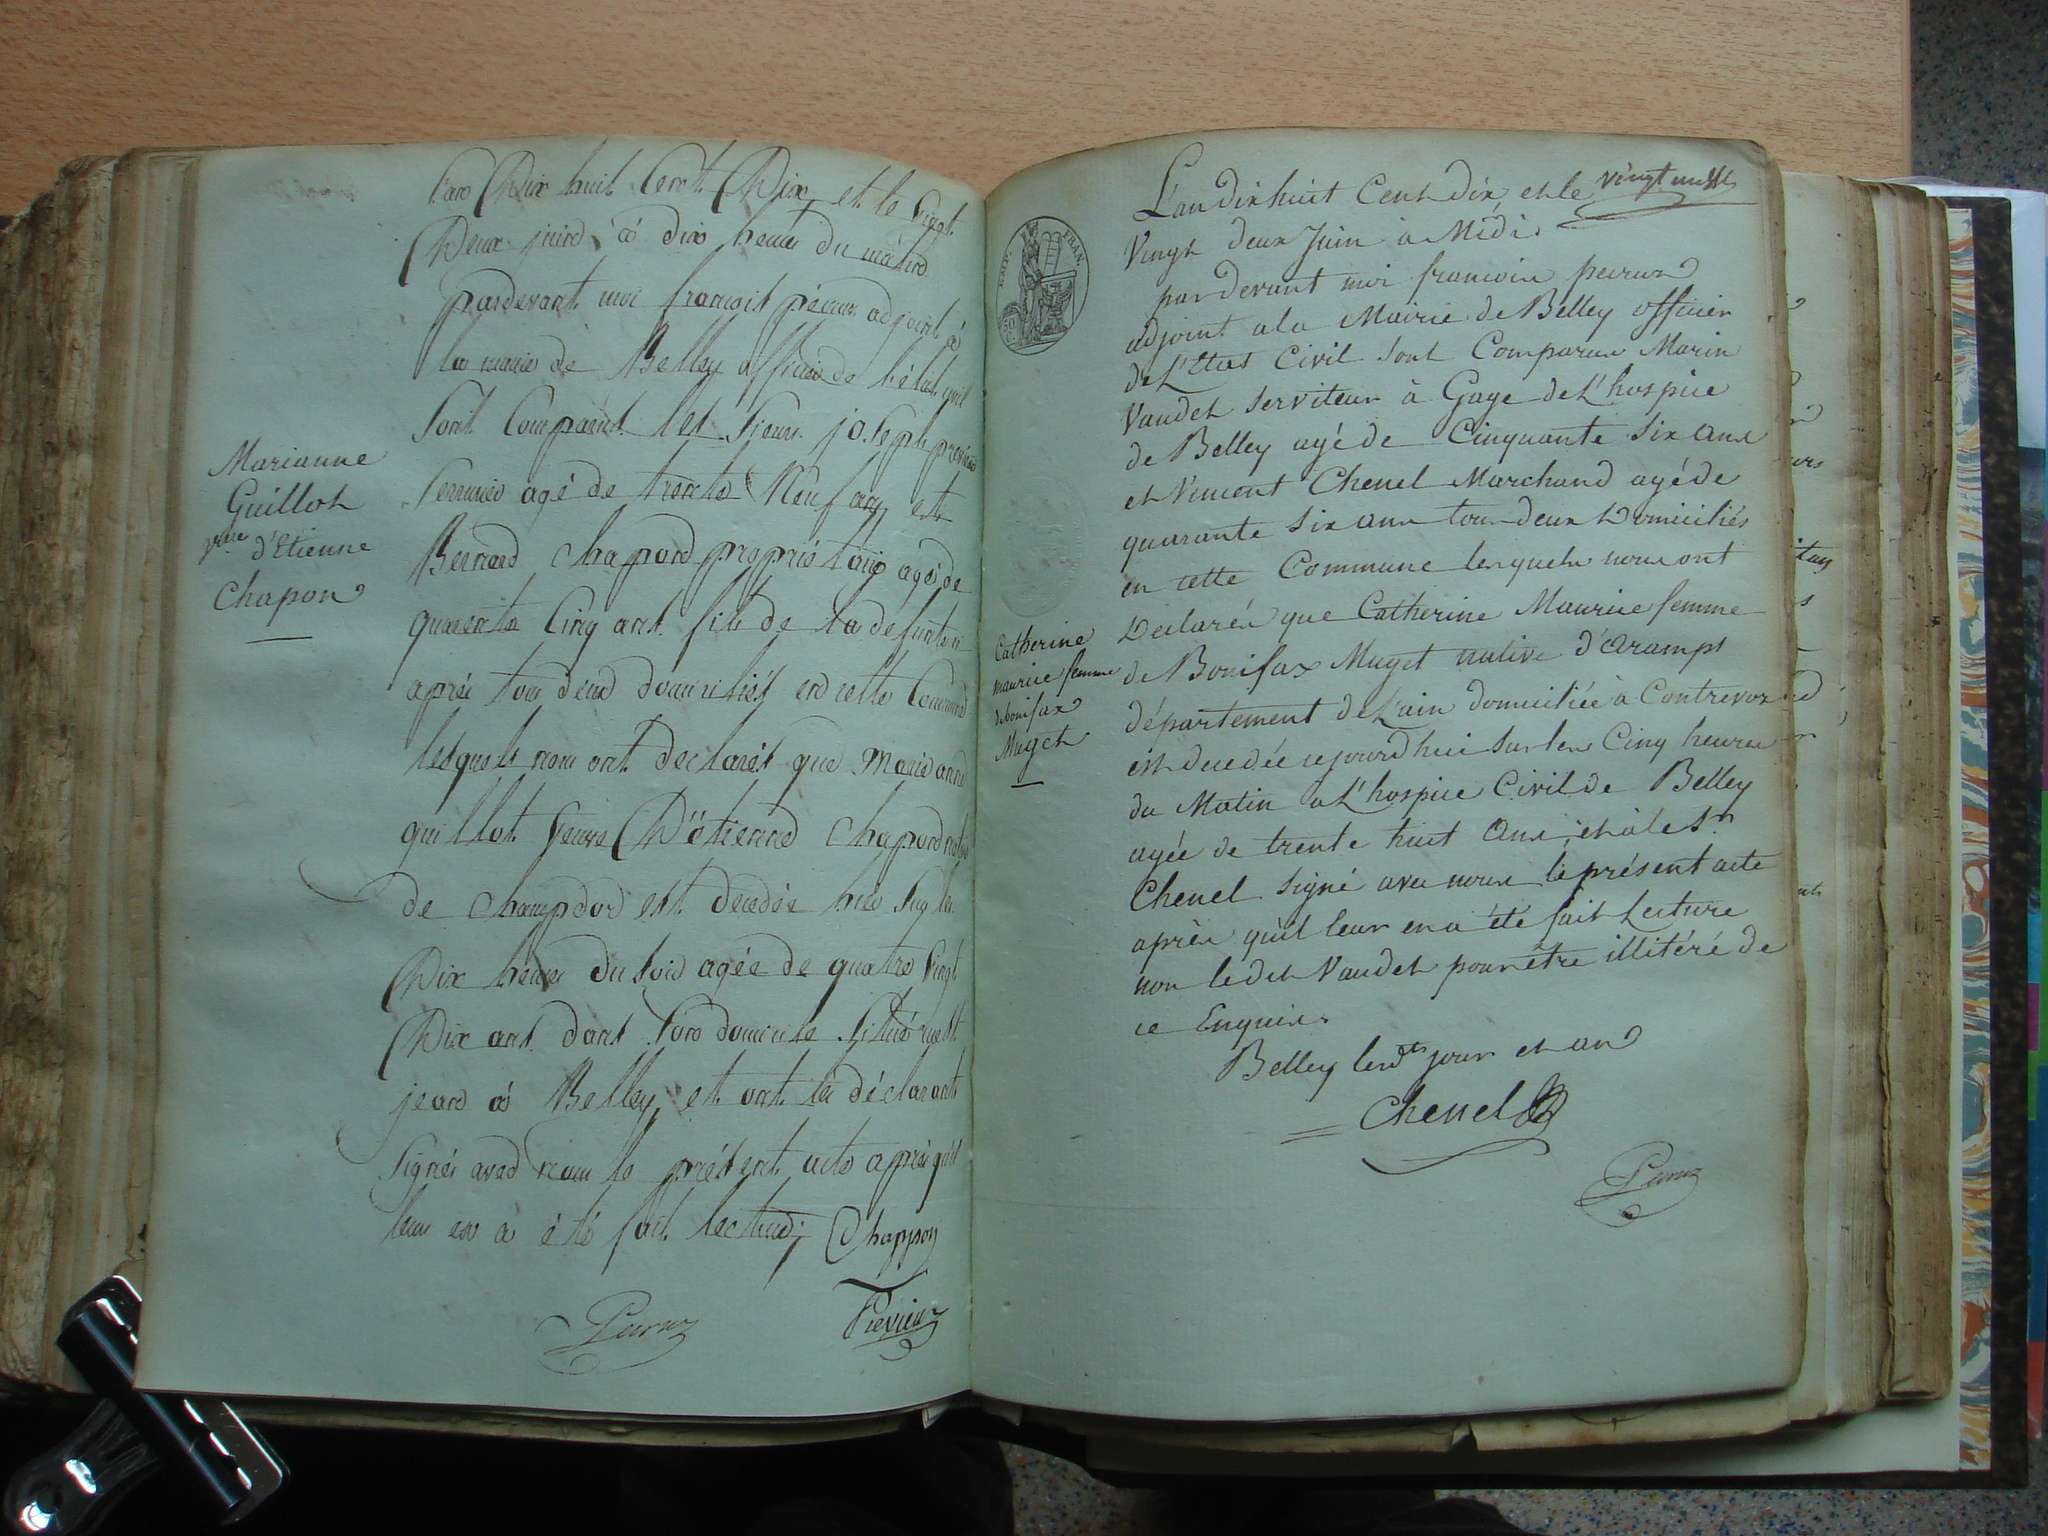 Marianne
Guillot
v.ve d'Etienne
Chapon
l'an Dix huit Cent Dix et le vingt
Deux juin à dix heures du matin
pardevant moi francois péruz adjoint à
la mairie de Belley officier de l'état civil
sont Comparus les sieurs joseph
serrurier agé de trente Neuf ans et
Bernard chapond propriétaire agé de
quarente Cinq ans fils de la defunte ci
aprés tous deux domiciliés en cette Commune
lesquels nous ont déclarés que Marianne
guillot veuve D'étienne chapond native
de champdor est decedée hier sur les
Dix heures du soir agée de quatre vingt
Dix ans dans son domicile situé rue St
jean à Belley et ont les déclarants
signés avec nous le présent acte aprés qu'il
leur en a été fait lecture; Chappon
Peruz
L'an dix huit Cent dix et le vingt
Vingt deux Juin à Midi.
par devant moi francois peruz
adjoint a la Mairie de Belley officier
de L'Etat Civil sont Comparus Marin
Vaudet serviteur à Gage de L'hospice
de Belley agé de Cinquante six ans
et Vincent Chenel Marchand agé de
quarante six ans tous deux Domiciliés
en cette Commune lesquels nous ont
Déclarés que Catherine Maurice femme
de Bonifax Muget native d'aramps
département de L'ain domiciliée à Contrevoz
est decedée cejourd'hui sur les Cinq heures
du Matin a L'hospice Civil de Belley
agée de trente huit Ans; et a le S.r
Chenel signé avec nous le présent acte
après qu'il leur en a été fait Lecture
non le dit Vaudet pour être illitéré de
ce Enquis.
Belley les d.ts jour et an
Chenel
Peruz
EMP. FRAN.
50 C.
Catherine
maurice femme
de bonifax
Muget